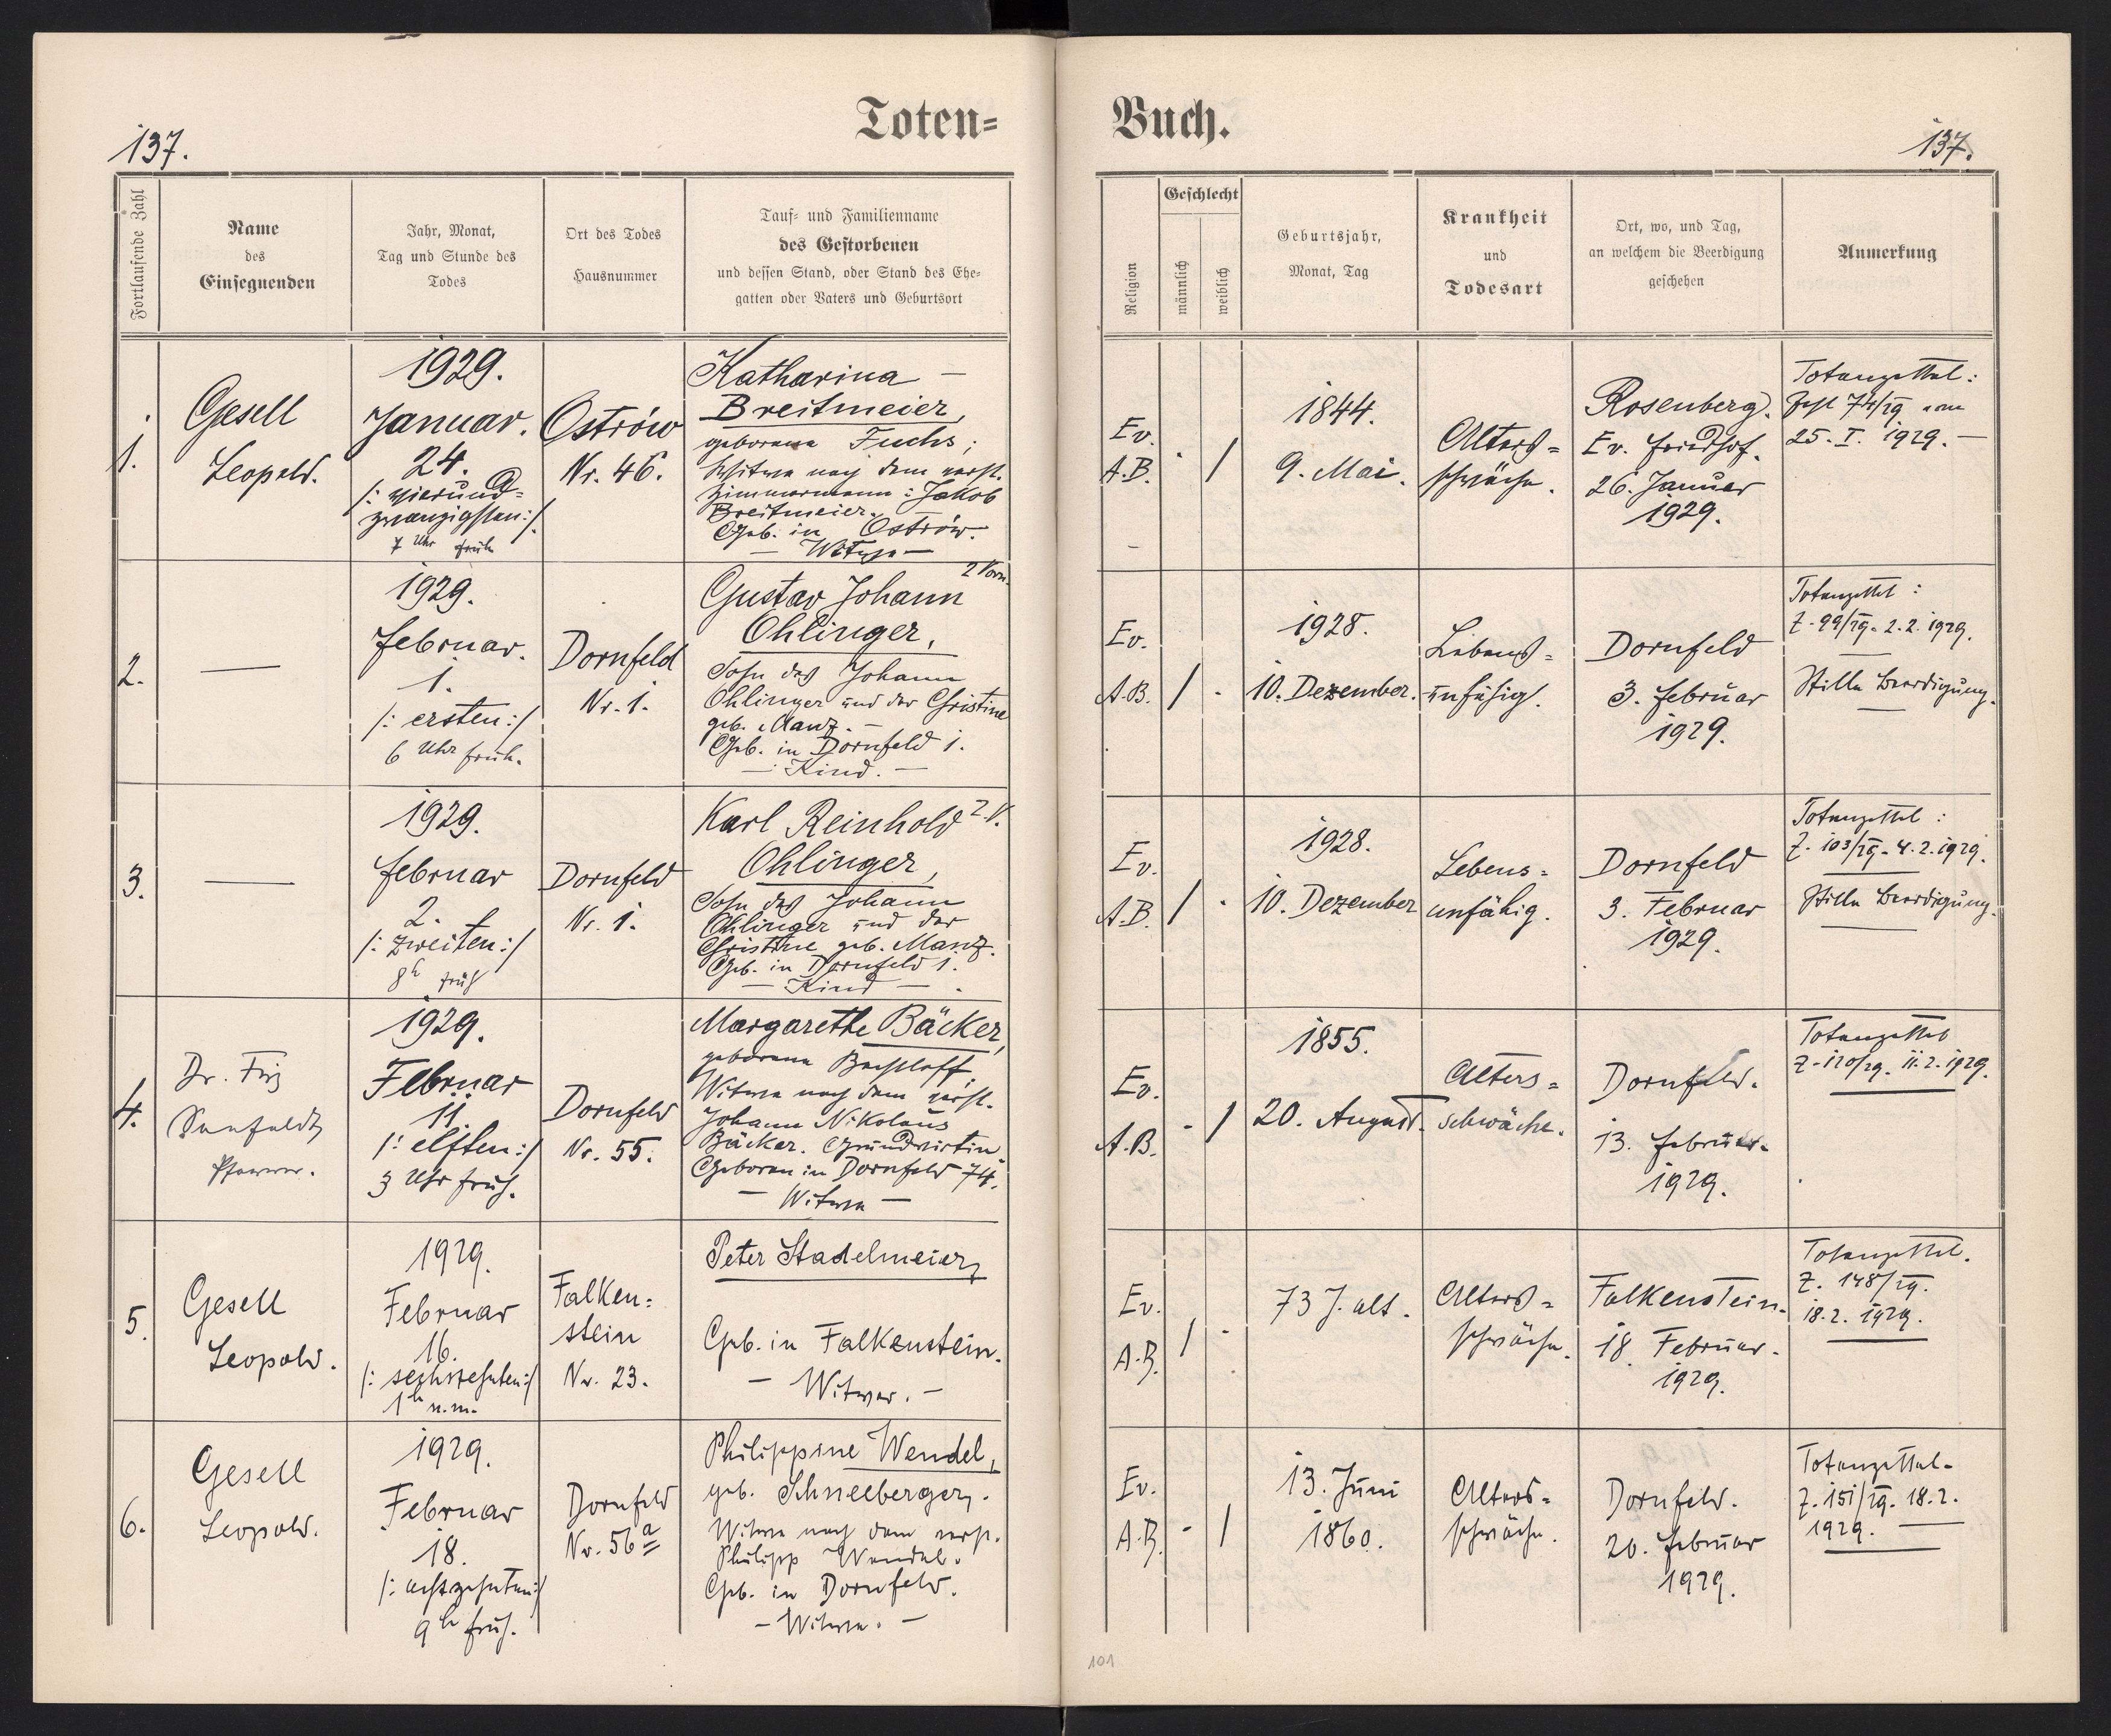 Toten=
Buch.
137.
137.
Fortlaufende Zahl
Name
des
Einsegnenden
Jahr, Monat,
Tag und Stunde des
Todes
Ort des Todes
Hausnummer
Tauf- und Familienname
des Gestorbenen
und dessen Stand, oder Stand des Ehe-
gatten oder Vaters und Geburtsort
Religion
Geschlecht
männlich
weiblich
Geburtsjahr,
Monat, Tag
Krankheit
und
Todesart
Ort, wo, und Tag,
an welchem die Beerdigung
geschehen
Anmerkung
1.
Gesell
Leopold.
1929.
Januar.
24.
/: vierund=
zwanzigsten :/.
7 Uhr früh
Ostrów
Nr. 46.
Katharina —
Breitmeier,
geborene Fuchs;
Witwe nach dem verst.
Zimmermann: Jakob
Breitmeier.
Geb. in Ostrów.
— Witwe —
Ev.
A.B.
- /
1844.
9. Mai.
Alters=
schwäche.
Rosenberg.
Ev. Friedhof.
26. Januar
1929.
Totenzettel:
74/29 vom
25. I. 1929. —
2.
—
1929.
Februar.
1.
/: ersten :/
6 Uhr früh.
Dornfeld
Nr. 1.
2 Vorn.
Gustav Johann
Ohlinger,
Sohn des Johann
Ohlinger und der Christine
geb. Manz. —
Geb. in Dornfeld 1.
— Kind. —
Ev.
A.B.
/ .
1928.
10. Dezember.
Lebens=
unfähig.
Dornfeld
3. Februar
1929.
Totenzettel:
Z. 99/29. 2.2.1929.
—
Stille Beerdigung.
3.
—
1929.
Februar
2.
/: zweiten :/
8h früh
Dornfeld
Nr. 1.
Karl Reinhold 2 V.
Ohlinger,
Sohn des Johann
Ohlinger und der
Christine geb. Manz.
Geb. in Dornfeld 1.
— Kind — .
Ev.
A.B.
/ .
1928.
10. Dezember
Lebens=
unfähig.
Dornfeld
3. Februar
1929.
Totenzettel:
Z. 103/29. 4.2.1929.
Stille Beerdigung.
4.
Dr. Friz
Seefeldt
Pfarrer.
1929.
Februar
11.
/: elften :/
3 Uhr früh.
Dornfeld
Nr. 55.
Margarethe Bäcker,
geborene
Witwe nach dem verst.
Johann Nikolaus
Bäcker. Grundwirtin.
Geboren in Dornfeld 74.
— Witwe —
Ev.
A.B.
- /
1855.
20. August.
Alters=
schwäche.
Dornfeld.
13. Februar.
1929.
Totenzettel
Z. 120/29. 11.2.1929.
5.
Gesell
Leopold.
1929.
Februar
16.
/: sechszehnten :/
1h n.m.
Falken=
stein
Nr. 23.
Peter Stadelmeier,
Geb. in Falkenstein.
— Witwer. —
Ev.
A.B.
/ -
73 J. alt.
Alters=
schwäche.
Falkenstein.
18. Februar.
1929.
Totenzettel.
Z. 148/29.
18.2.1929.
6.
Gesell
Leopold.
1929.
Februar
18.
/: achtzehnten :/
9h früh.
Dornfeld
Nr. 56a
Philippine Wendel,
geb. Schneeberger.
Witwe nach dem verst.
Philipp Wendel.
Geb. in Dornfeld.
— Witwe. —
Ev.
A.B.
- /
13. Juni
1860.
Alters=
schwäche.
Dornfeld.
20. Februar
1929.
Totenzettel.
Z. 151/29. 18.2.
1929. —
101